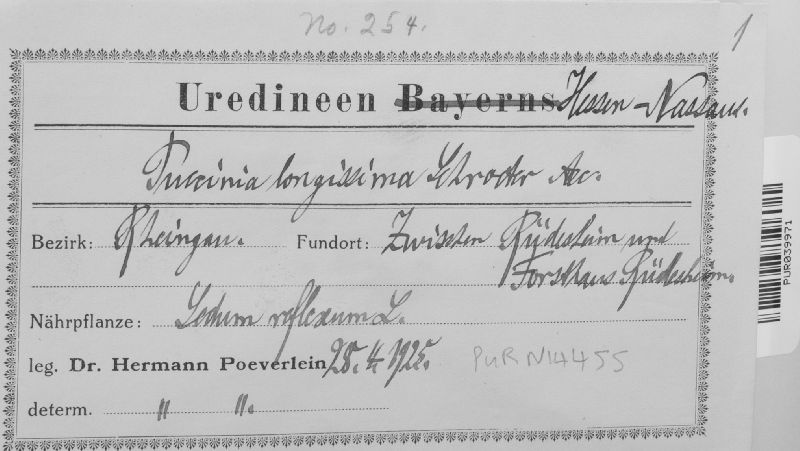 No. 254.
1
Uredineen Bayerns Hessen-Nassau.
Puccinia longissima Schroeter Aec.
Bezirk: Rheingau. Fundort: Zwischen Rüdesheim und
Forsthaus Rüdesheim.
Nährpflanze: Sedum reflexum L.
leg. Dr. Hermann Poeverlein 25. 4. 1925.
PUR N14455
determ. " ".
PUR039971